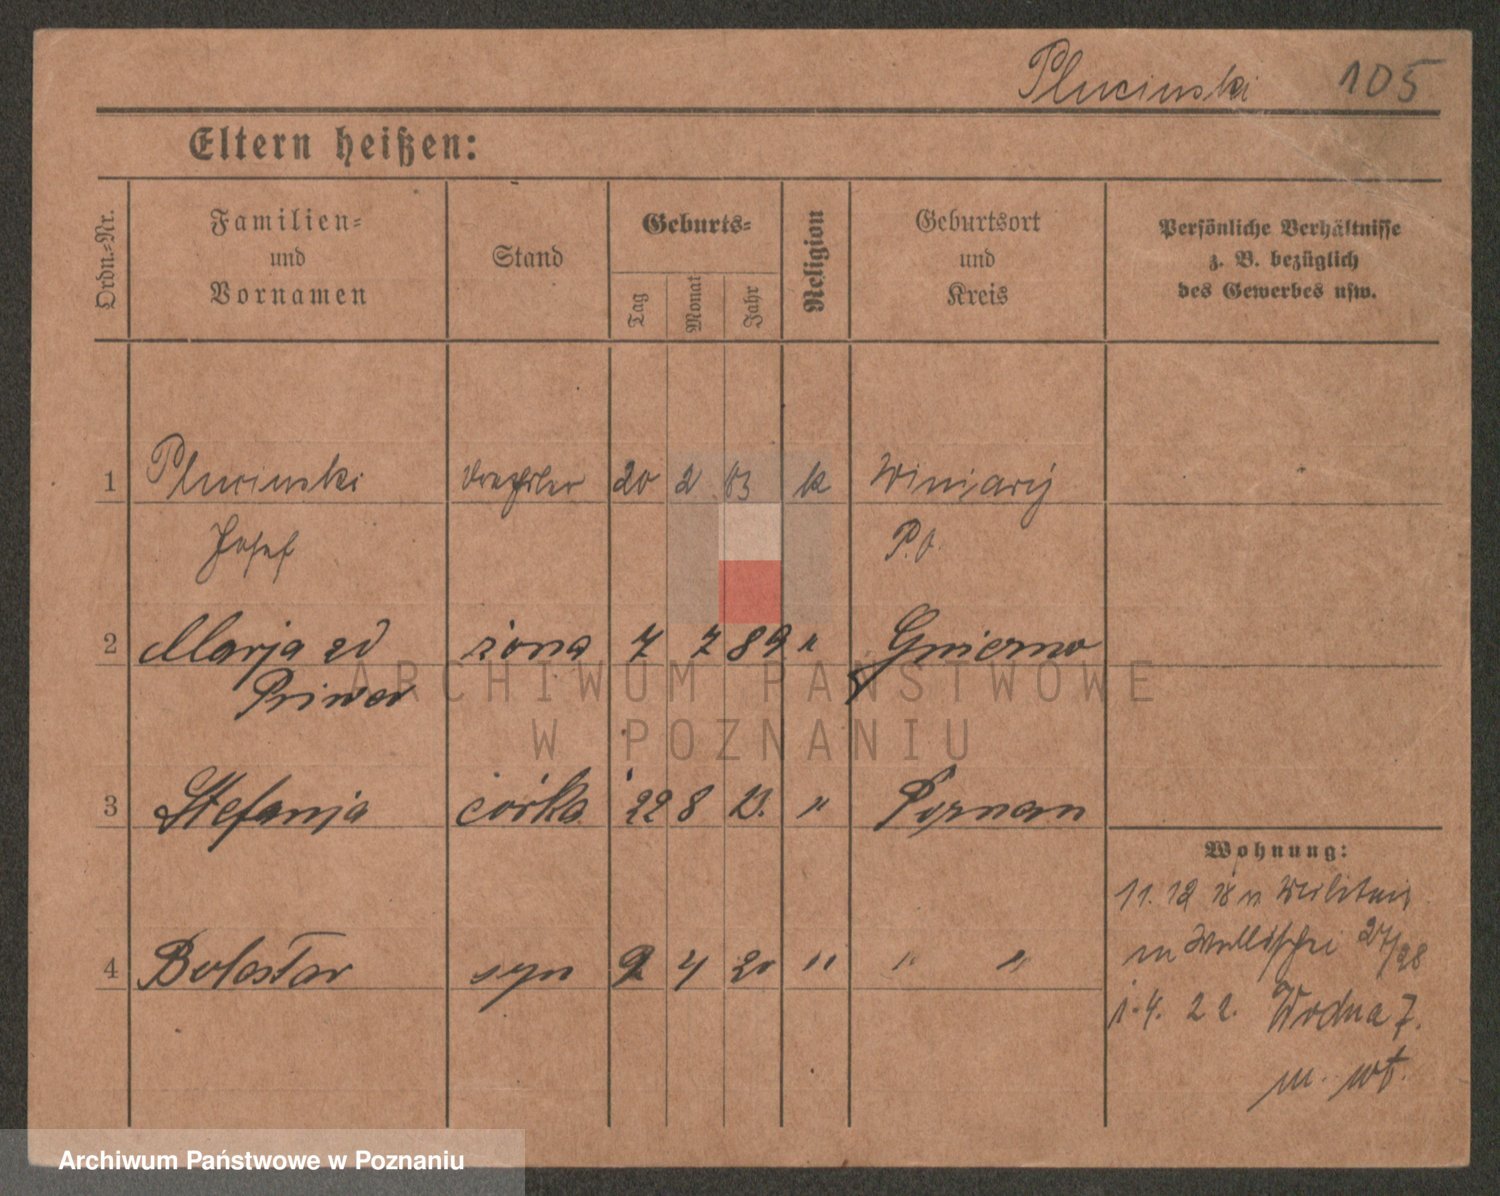 Plucinski 105
Eltern heißen:
Ordn.-Nr.
Familien-
und
Vornamen
Stand
Geburts-
Tag
Monat
Jahr
Religion
Geburtsort
und
Kreis
Persönliche Verhältnisse
z. B. bezüglich
des Gewerbes usw.
1 Plucinski 20 2 83 k Winiary
Josef P. O.
2 Marja zd żona 7 7 89 "
3 Stefanja córka 22 8 " Poznan
4 syn 2 4 20 " " "
Wohnung:
11. 12 18
Wallischei 27/28
1. 4. 22. Wodna 7.
ARCHIWUM PAŃSTWOWE
W POZNANIU
Archiwum Państwowe w Poznaniu